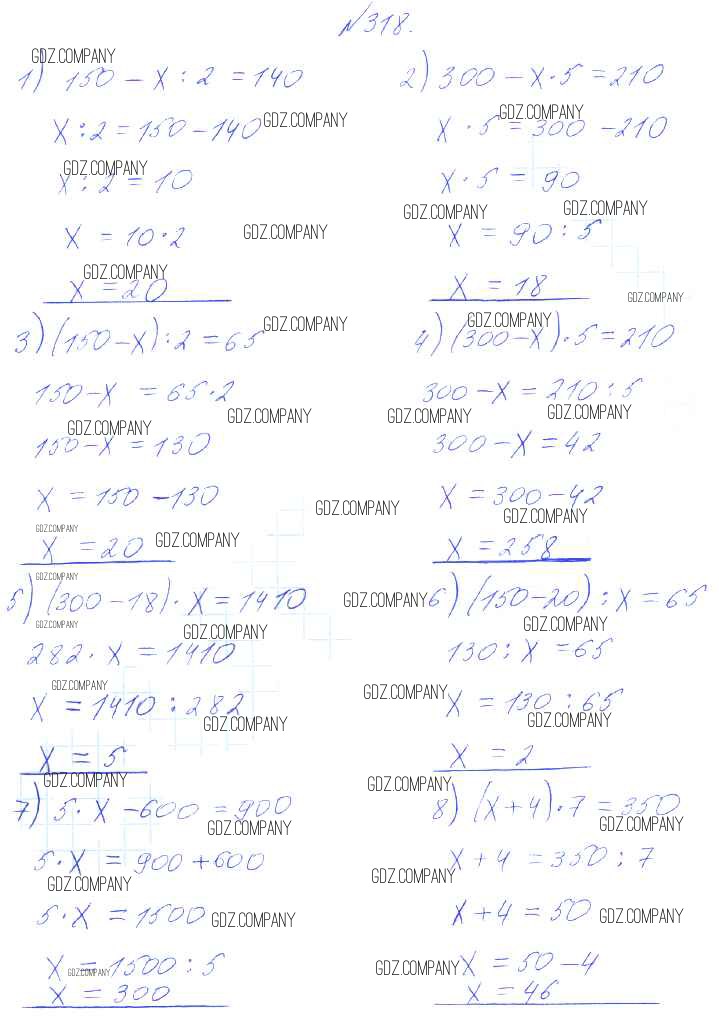 №318.
GDZ.COMPANY
1) 150 - x : 2 = 140
x : 2 = 150 - 140 GDZ.COMPANY
GDZ.COMPANY
x : 2 = 10
x = 10 · 2 GDZ.COMPANY
GDZ.COMPANY
x = 20
2) 300 - x · 5 = 210
GDZ.COMPANY
x · 5 = 300 - 210
x · 5 = 90
GDZ.COMPANY GDZ.COMPANY
x = 90 : 5
x = 18
GDZ.COMPANY
3) (150 - x) : 2 = 65 GDZ.COMPANY
150 - x = 65 · 2
GDZ.COMPANY
GDZ.COMPANY
150 - x = 130
x = 150 - 130
GDZ.COMPANY
GDZ.COMPANY
x = 20 GDZ.COMPANY
GDZ.COMPANY
4) (300 - x) · 5 = 210
300 - x = 210 : 5
GDZ.COMPANY GDZ.COMPANY
300 - x = 42
x = 300 - 42
GDZ.COMPANY
x = 258
GDZ.COMPANY
5) (300 - 18) · x = 1410
GDZ.COMPANY
GDZ.COMPANY
282 · x = 1410
GDZ.COMPANY
x = 1410 : 282
GDZ.COMPANY
x = 5
GDZ.COMPANY 6) (150 - 20) : x = 65
GDZ.COMPANY
130 : x = 65
GDZ.COMPANY
x = 130 : 65
GDZ.COMPANY
x = 2
GDZ.COMPANY
7) 5 · x - 600 = 900
GDZ.COMPANY
5 · x = 900 + 600
GDZ.COMPANY
5 · x = 1500 GDZ.COMPANY
x = 1500 : 5
GDZ.COMPANY
x = 300
GDZ.COMPANY
8) (x + 4) · 7 = 350
GDZ.COMPANY
x + 4 = 350 : 7
GDZ.COMPANY
x + 4 = 50 GDZ.COMPANY
GDZ.COMPANY x = 50 - 4
x = 46